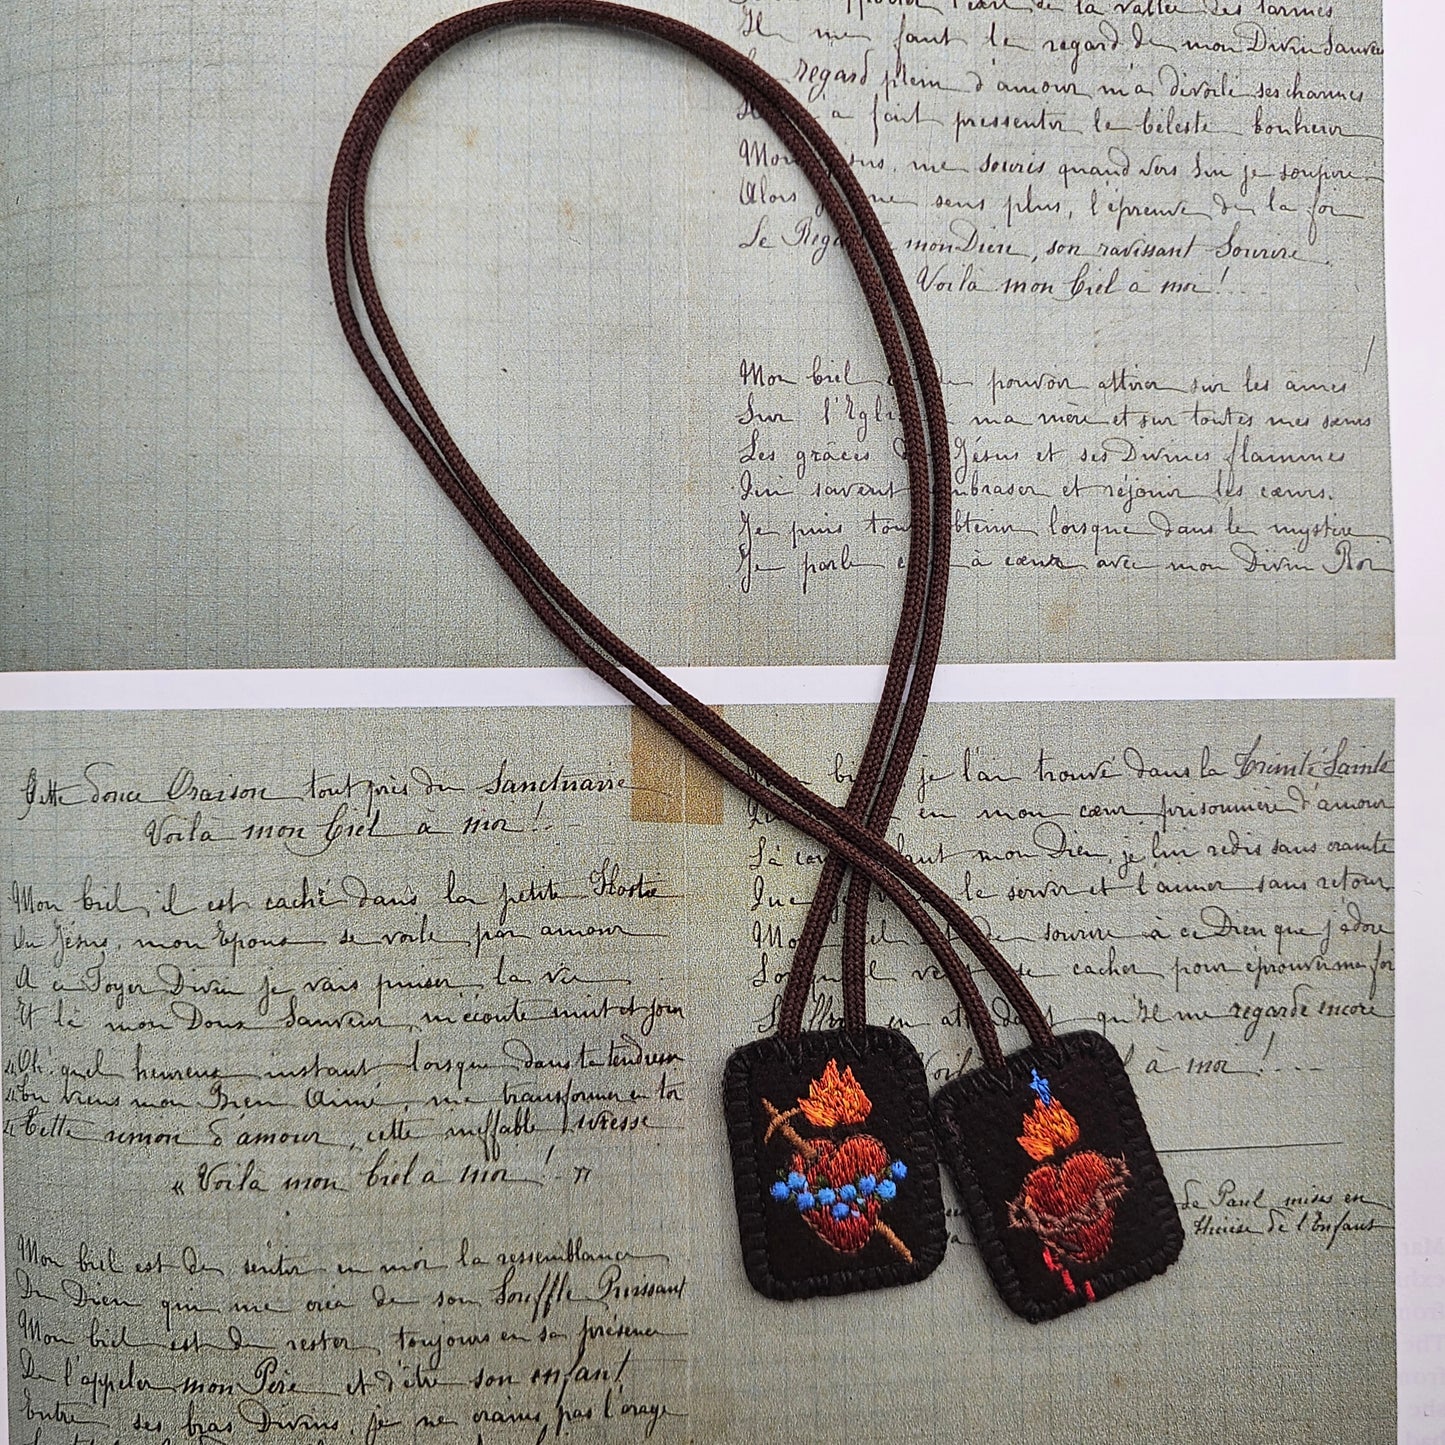 la vallée des larmes
Il me faut le regard de mon Divin Sauveur
regard plein d'amour m'a dévoilé ses charmes
a fait pressentir le Céleste bonheur
Mon me souris quand vers Lui je soupire
Alors je ne sens plus, l'épreuve de la foi
Le Regard mon Dieu, son ravissant Sourire
Voilà mon Ciel à moi !...
Mon Ciel pouvoir attirer sur les âmes
Sur l'Eglise ma mère et sur toutes mes sœurs
Les grâces de Jésus et ses Divines flammes
Qui savent embraser et réjouir les cœurs.
Je puis tout obtenir lorsque dans le mystère
Je parle cœur à cœur avec mon Divin Roi
Cette douce Oraison tout près du Sanctuaire
Voilà mon Ciel à moi !..
Mon Ciel, il est caché dans la petite Hostie
Où Jésus, mon Epoux se voile par amour
A ce Foyer Divin je vais puiser la vie
Et là mon Doux Sauveur, m'écoute nuit et jour
« Oh! quel heureux instant lorsque dans ta tendresse
« Tu viens mon Bien Aimé, me transformer en toi
« Cette union d'amour, cette ineffable ivresse
« Voilà mon Ciel à moi !.. »
Mon Ciel est de sentir en moi la ressemblance
Du Dieu qui me créa de son Souffle Puissant
Mon Ciel est de rester toujours en sa présence
De l'appeler mon Père et d'être son enfant
Entre ses bras Divins, je ne crains pas l'orage
je l'ai trouvé dans la Trinité Sainte
en mon cœur, prisonnière d'amour
Là mon Dieu, je lui redis sans crainte
Que je le servir et l'aimer sans retour
Mon Ciel est de sourire à ce Dieu que j'adore
Lorsqu'il veut se cacher pour éprouver ma foi
Souffrir en attendant qu'Il me regarde encore
Voilà à moi !....
de Paul mises en
Thérèse de l'Enfant